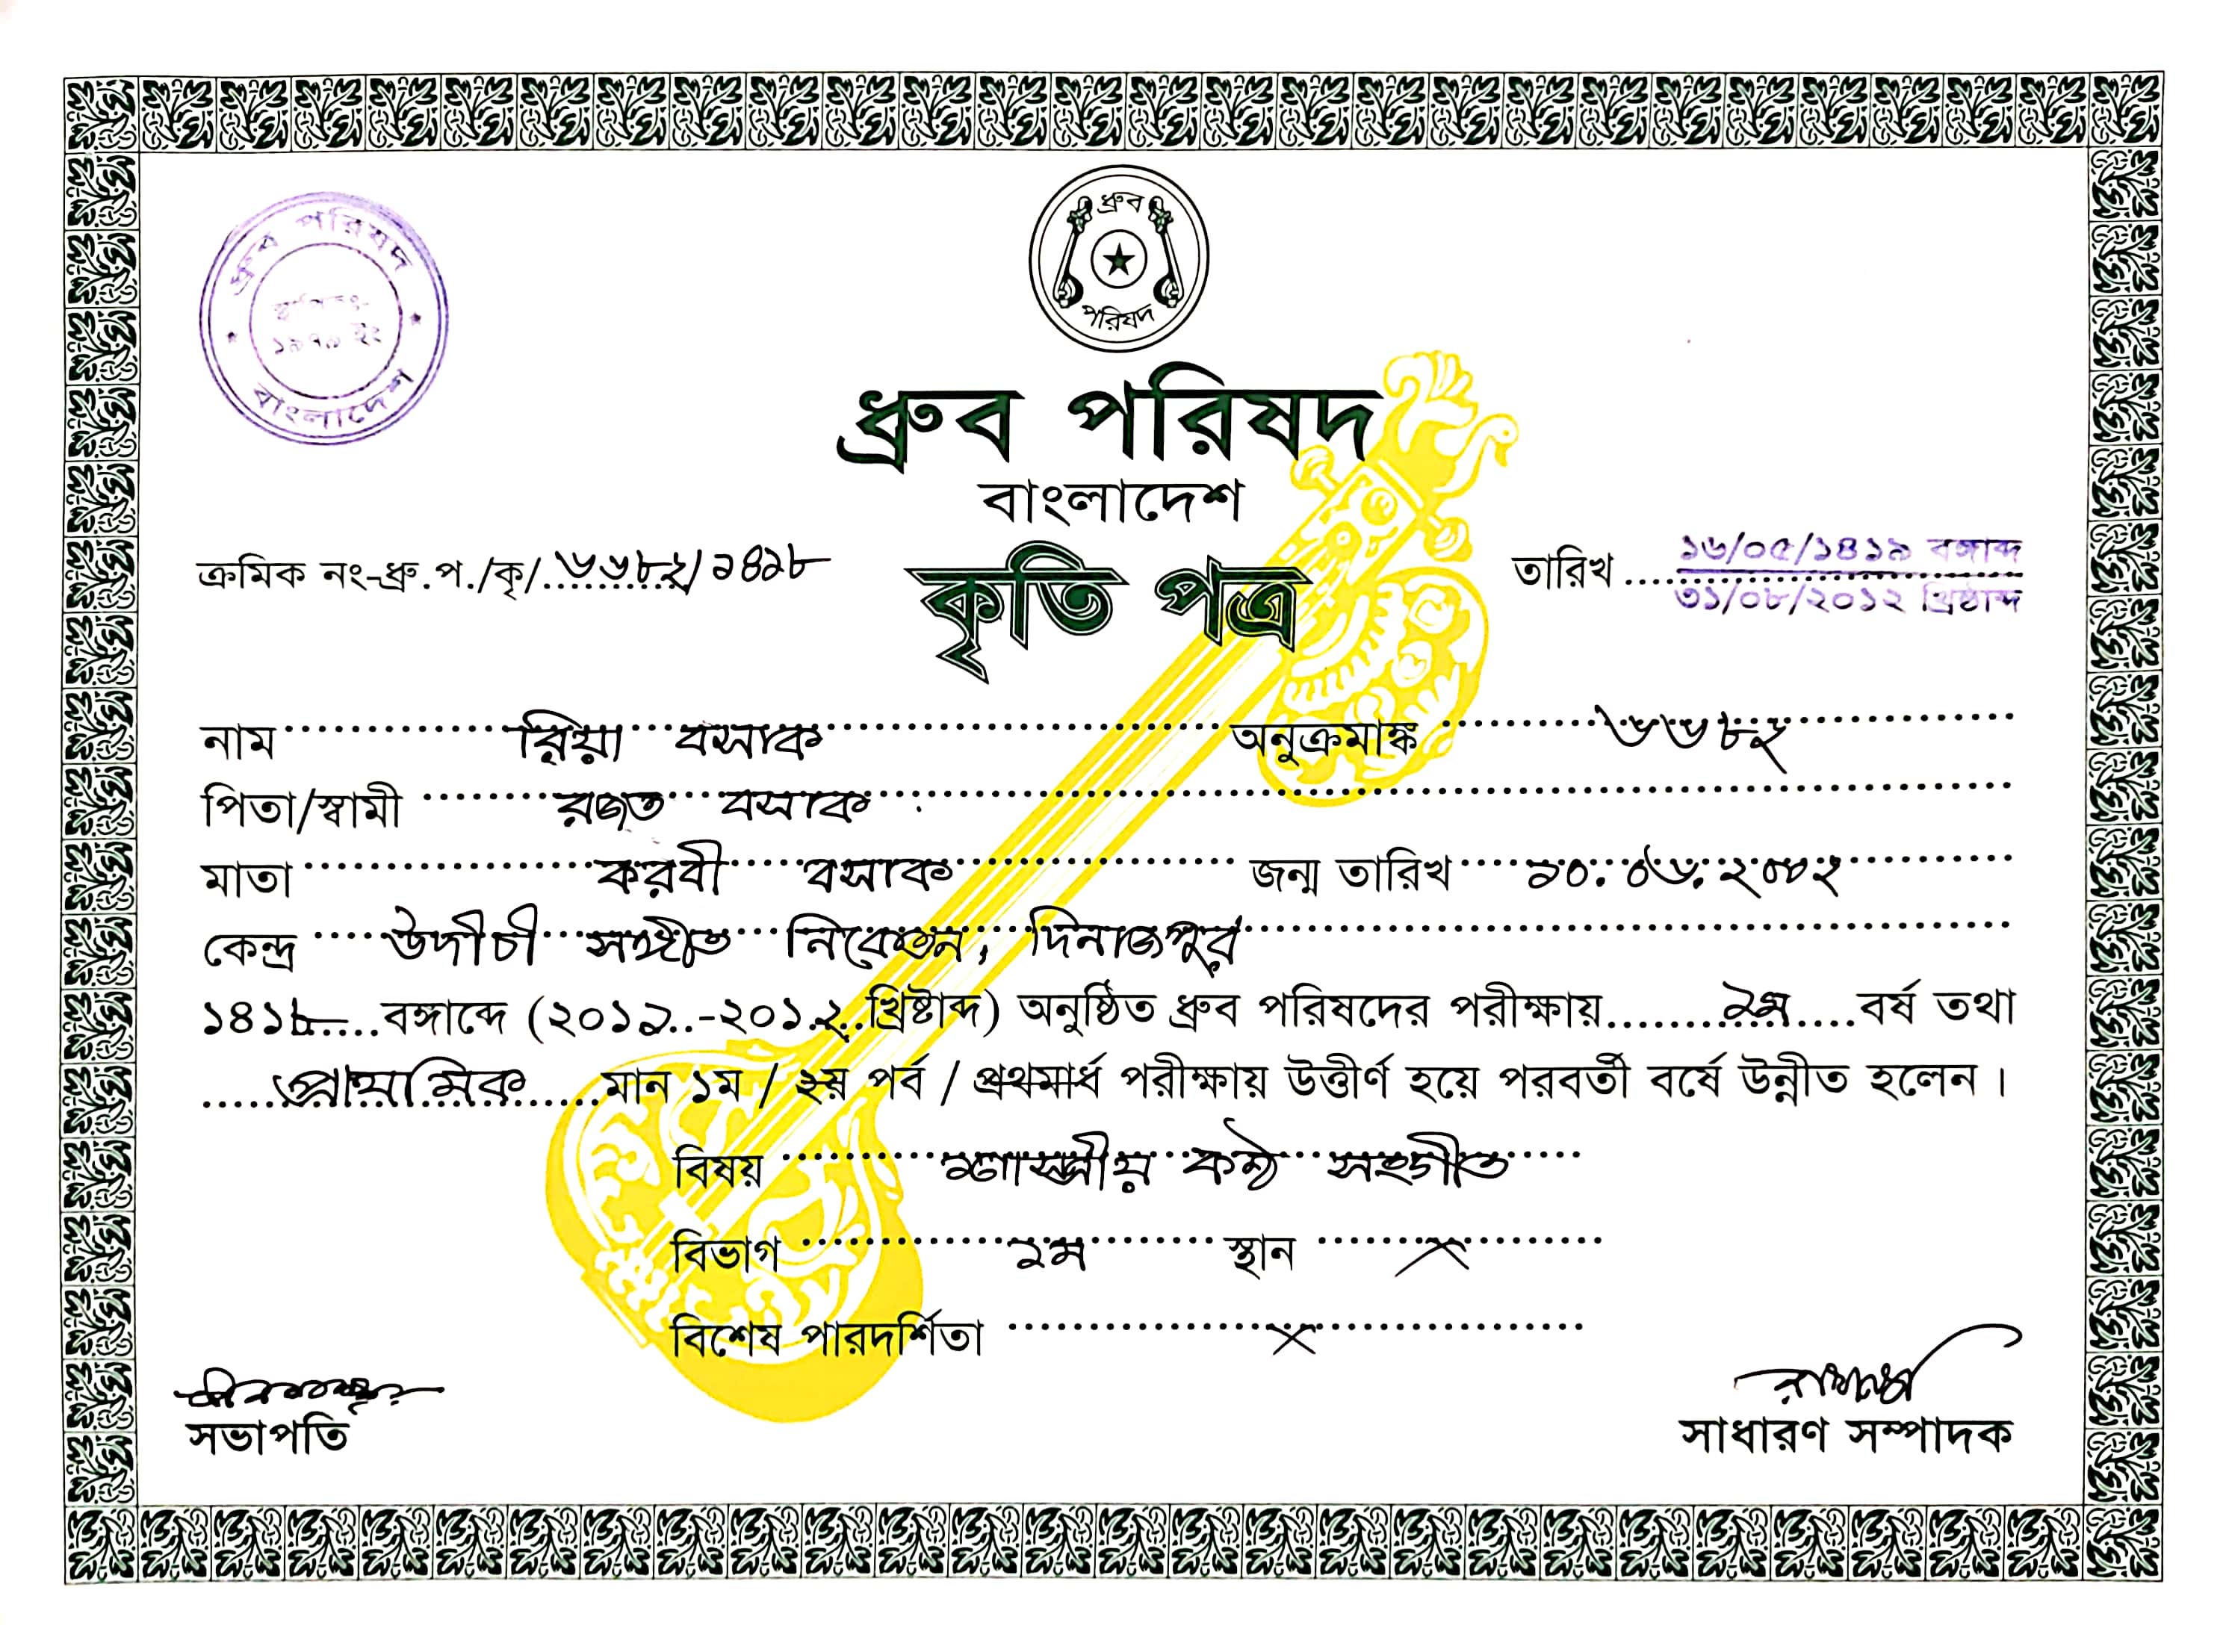 ধ্রুব পরিষদ
বাংলাদেশ
ধ্রুব
পরিষদ
ধ্রুব পরিষদ
বাংলাদেশ
ক্রমিক নং-ধ্রু.প./কৃ/..৬৬৮২/১৪১৮
কৃতি পত্র
তারিখ ....১৬/০৫/১৪১৯ বঙ্গাব্দ
৩১/০৮/২০১২ খ্রিষ্টাব্দ
নাম রিয়া বসাক অনুক্রমাঙ্ক ৬৬৮২
পিতা/স্বামী রজত বসাক
মাতা করবী বসাক জন্ম তারিখ ১০.০৬.২০০২
কেন্দ্র উদীচী সঙ্গীত নিকেতন, দিনাজপুর
১৪১৮.....বঙ্গাব্দে (২০১১..-২০১২..খ্রিষ্টাব্দ) অনুষ্ঠিত ধ্রুব পরিষদের পরীক্ষায়........১ম....বর্ষ তথা
.....প্রাথমিক.....মান ১ম / ২য় পর্ব / প্রথমার্ধ পরীক্ষায় উত্তীর্ণ হয়ে পরবর্তী বর্ষে উন্নীত হলেন।
বিষয় শাস্ত্রীয় কণ্ঠ সংগীত
বিভাগ ১ম স্থান ×
বিশেষ পারদর্শিতা ×
সভাপতি
সাধারণ সম্পাদক